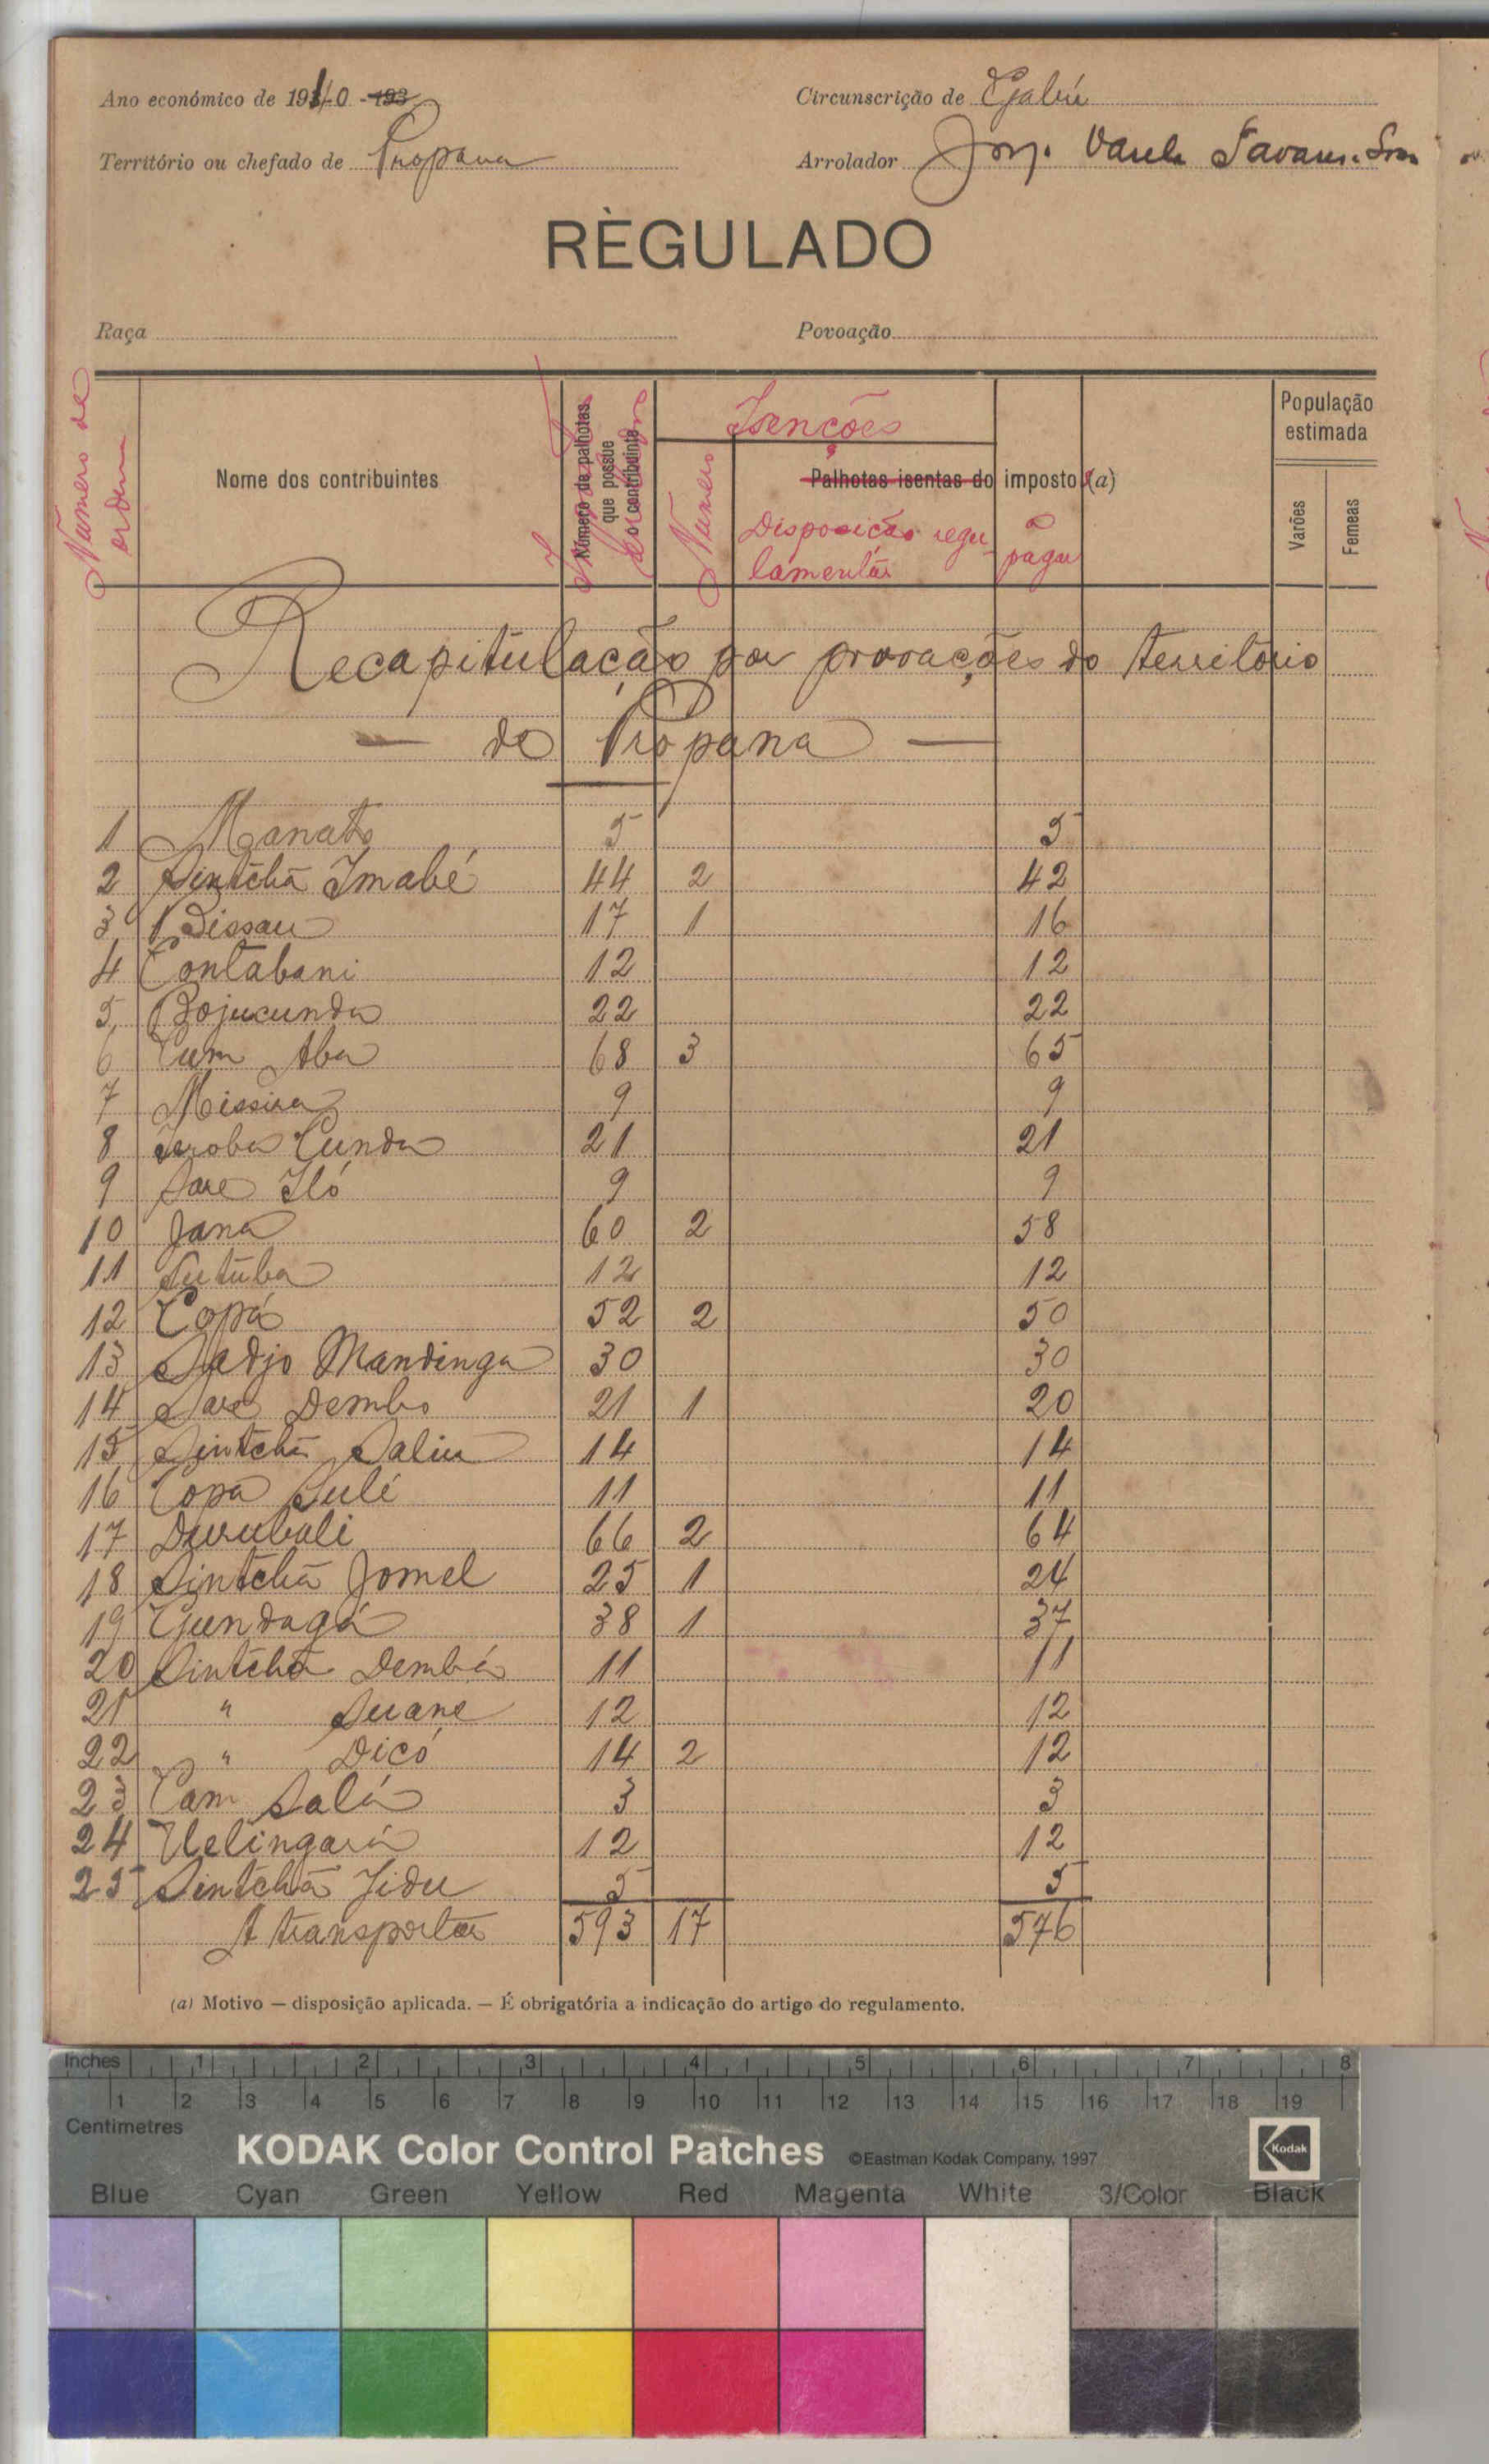 Ano económico de 1940 - 193
Circunscrição de Gabú
Território ou chefado de Propana
Arrolador Jorge Varela Tavares
RÈGULADO
Raça
Povoação
Numero de ordem
Nome dos contribuintes
Número de palhotas que possue o contribuinte
Isenções
Numero
Palhotas isentas do imposto (a)
Disposição regu-
lamentár
a pagar
População estimada
Varões
Femeas
Recapitulação por provações do território
— de Propana —
1 Manato 5 5
2 Sintchã Imabé 44 2 42
3 Bissau 17 1 16
4 Contabani 12 12
5 Bojucunda 22 22
6 Cum Aba 68 3 65
7 Missira 9 9
8 Seroba Cunda 21 21
9 Sare Iló 9 9
10 Jana 60 2 58
11 Sutuba 12 12
12 Copá 52 2 50
13 Sadjo Mandinga 30 30
14 Sare Dembo 21 1 20
15 Sintchã Saliu 14 14
16 Copa Sulé 11 11
17 Durubali 66 2 64
18 Sintchã Jomel 25 1 24
19 Gundagá 38 1 37
20 Sintchã Dembá 11 11
21 " Suane 12 12
22 " Dicó 14 2 12
23 Cam Salá 3 3
24 Uelingará 12 12
25 Sintchã Jidu 5 5
A transportar 593 17 576
(a) Motivo — disposição aplicada. — É obrigatória a indicação do artigo do regulamento.
Inches 1 2 3 4 5 6 7 8
1 2 3 4 5 6 7 8 9 10 11 12 13 14 15 16 17 18 19
Centimetres
KODAK Color Control Patches ©Eastman Kodak Company, 1997 Kodak
Blue Cyan Green Yellow Red Magenta White 3/Color Black